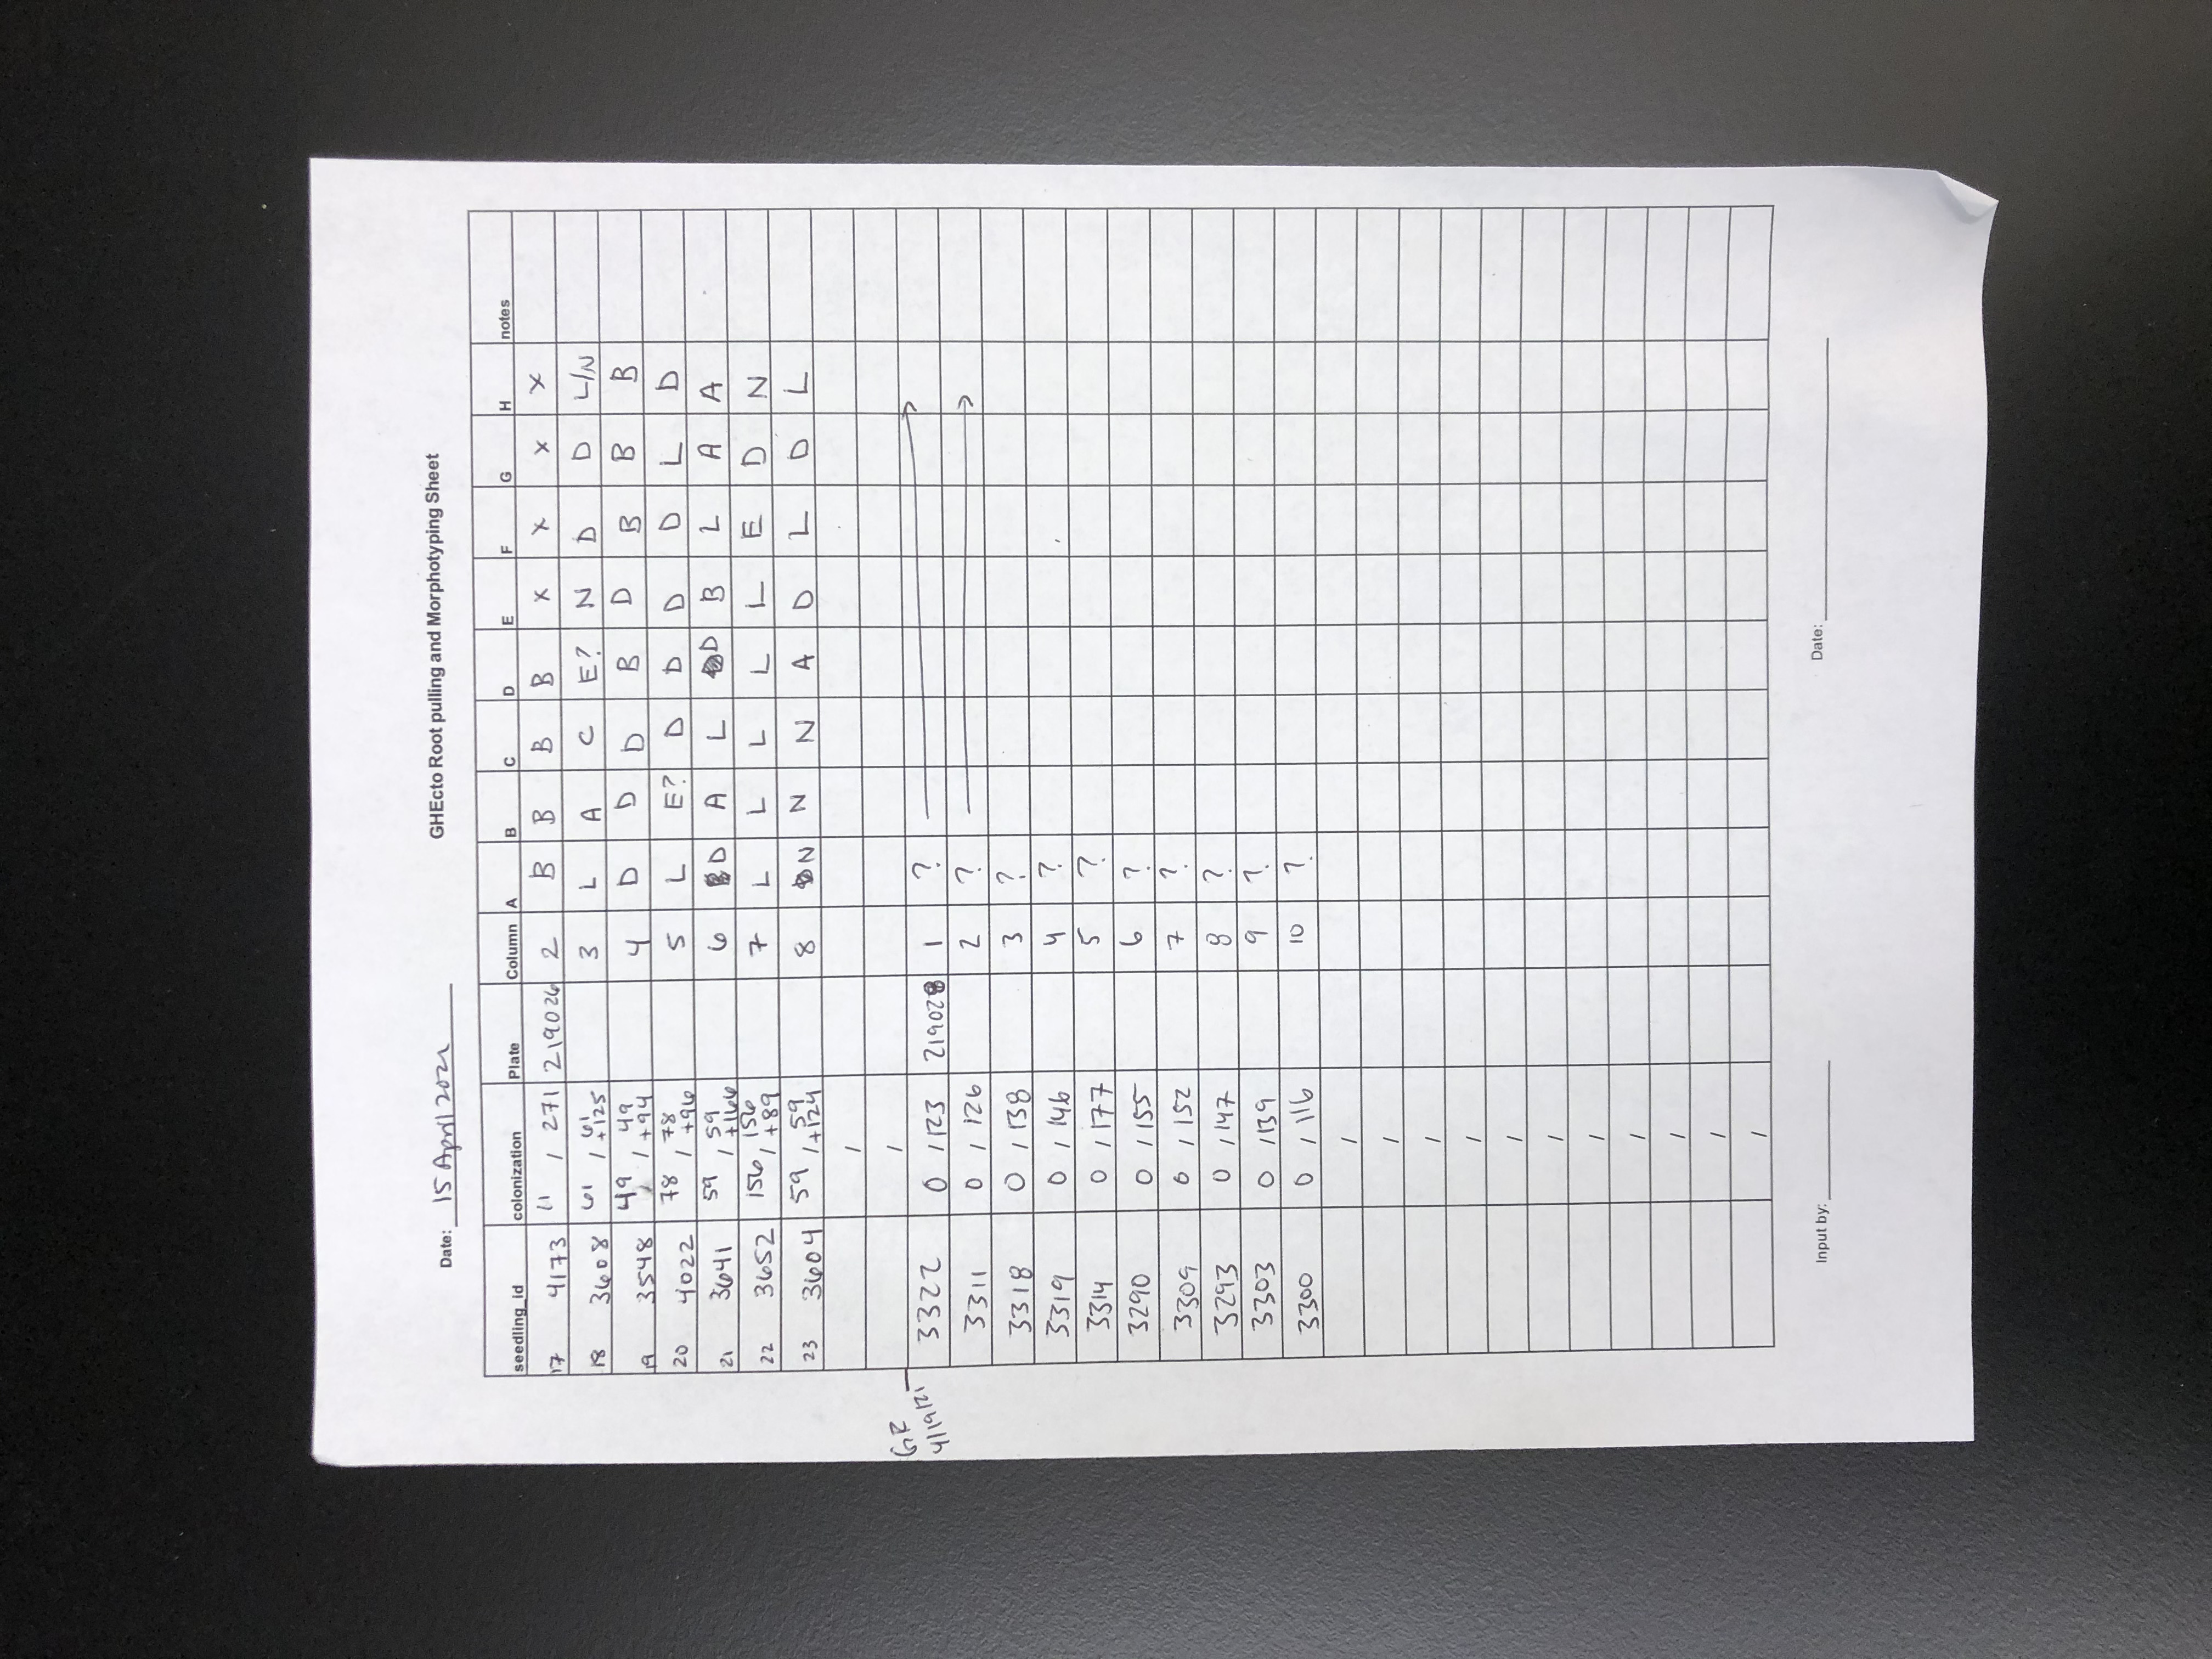 GHEcto Root pulling and Morphotyping Sheet
Date: 15 April 2021
seedling_id colonization Plate Column A B C D E F G H notes
17 4173 11 / 271 219026 2 B B B B X X X X
18 3608 61 / 61 +125 3 L A C E? N D D L/N
19 3548 49 / 49 +94 4 D D D B D B B B
20 4022 78 / 78 +96 5 L E? D D D D L D
21 3641 59 / 59 +166 6 D A L D B L A A
22 3652 156 / 156 +89 7 L L L L L E D N
23 3604 59 / 59 +124 8 N N N A D L D L
/
/
GR
4/19/21
3322 0 / 123 219028 1 ?
3311 0 / 126 2 ?
3318 0 / 138 3 ?
3319 0 / 146 4 ?
3314 0 / 177 5 ?
3290 0 / 155 6 ?
3309 0 / 152 7 ?
3293 0 / 147 8 ?
3303 0 / 139 9 ?
3300 0 / 116 10 ?
/
/
/
/
/
/
/
/
/
/
/
Input by: Date: